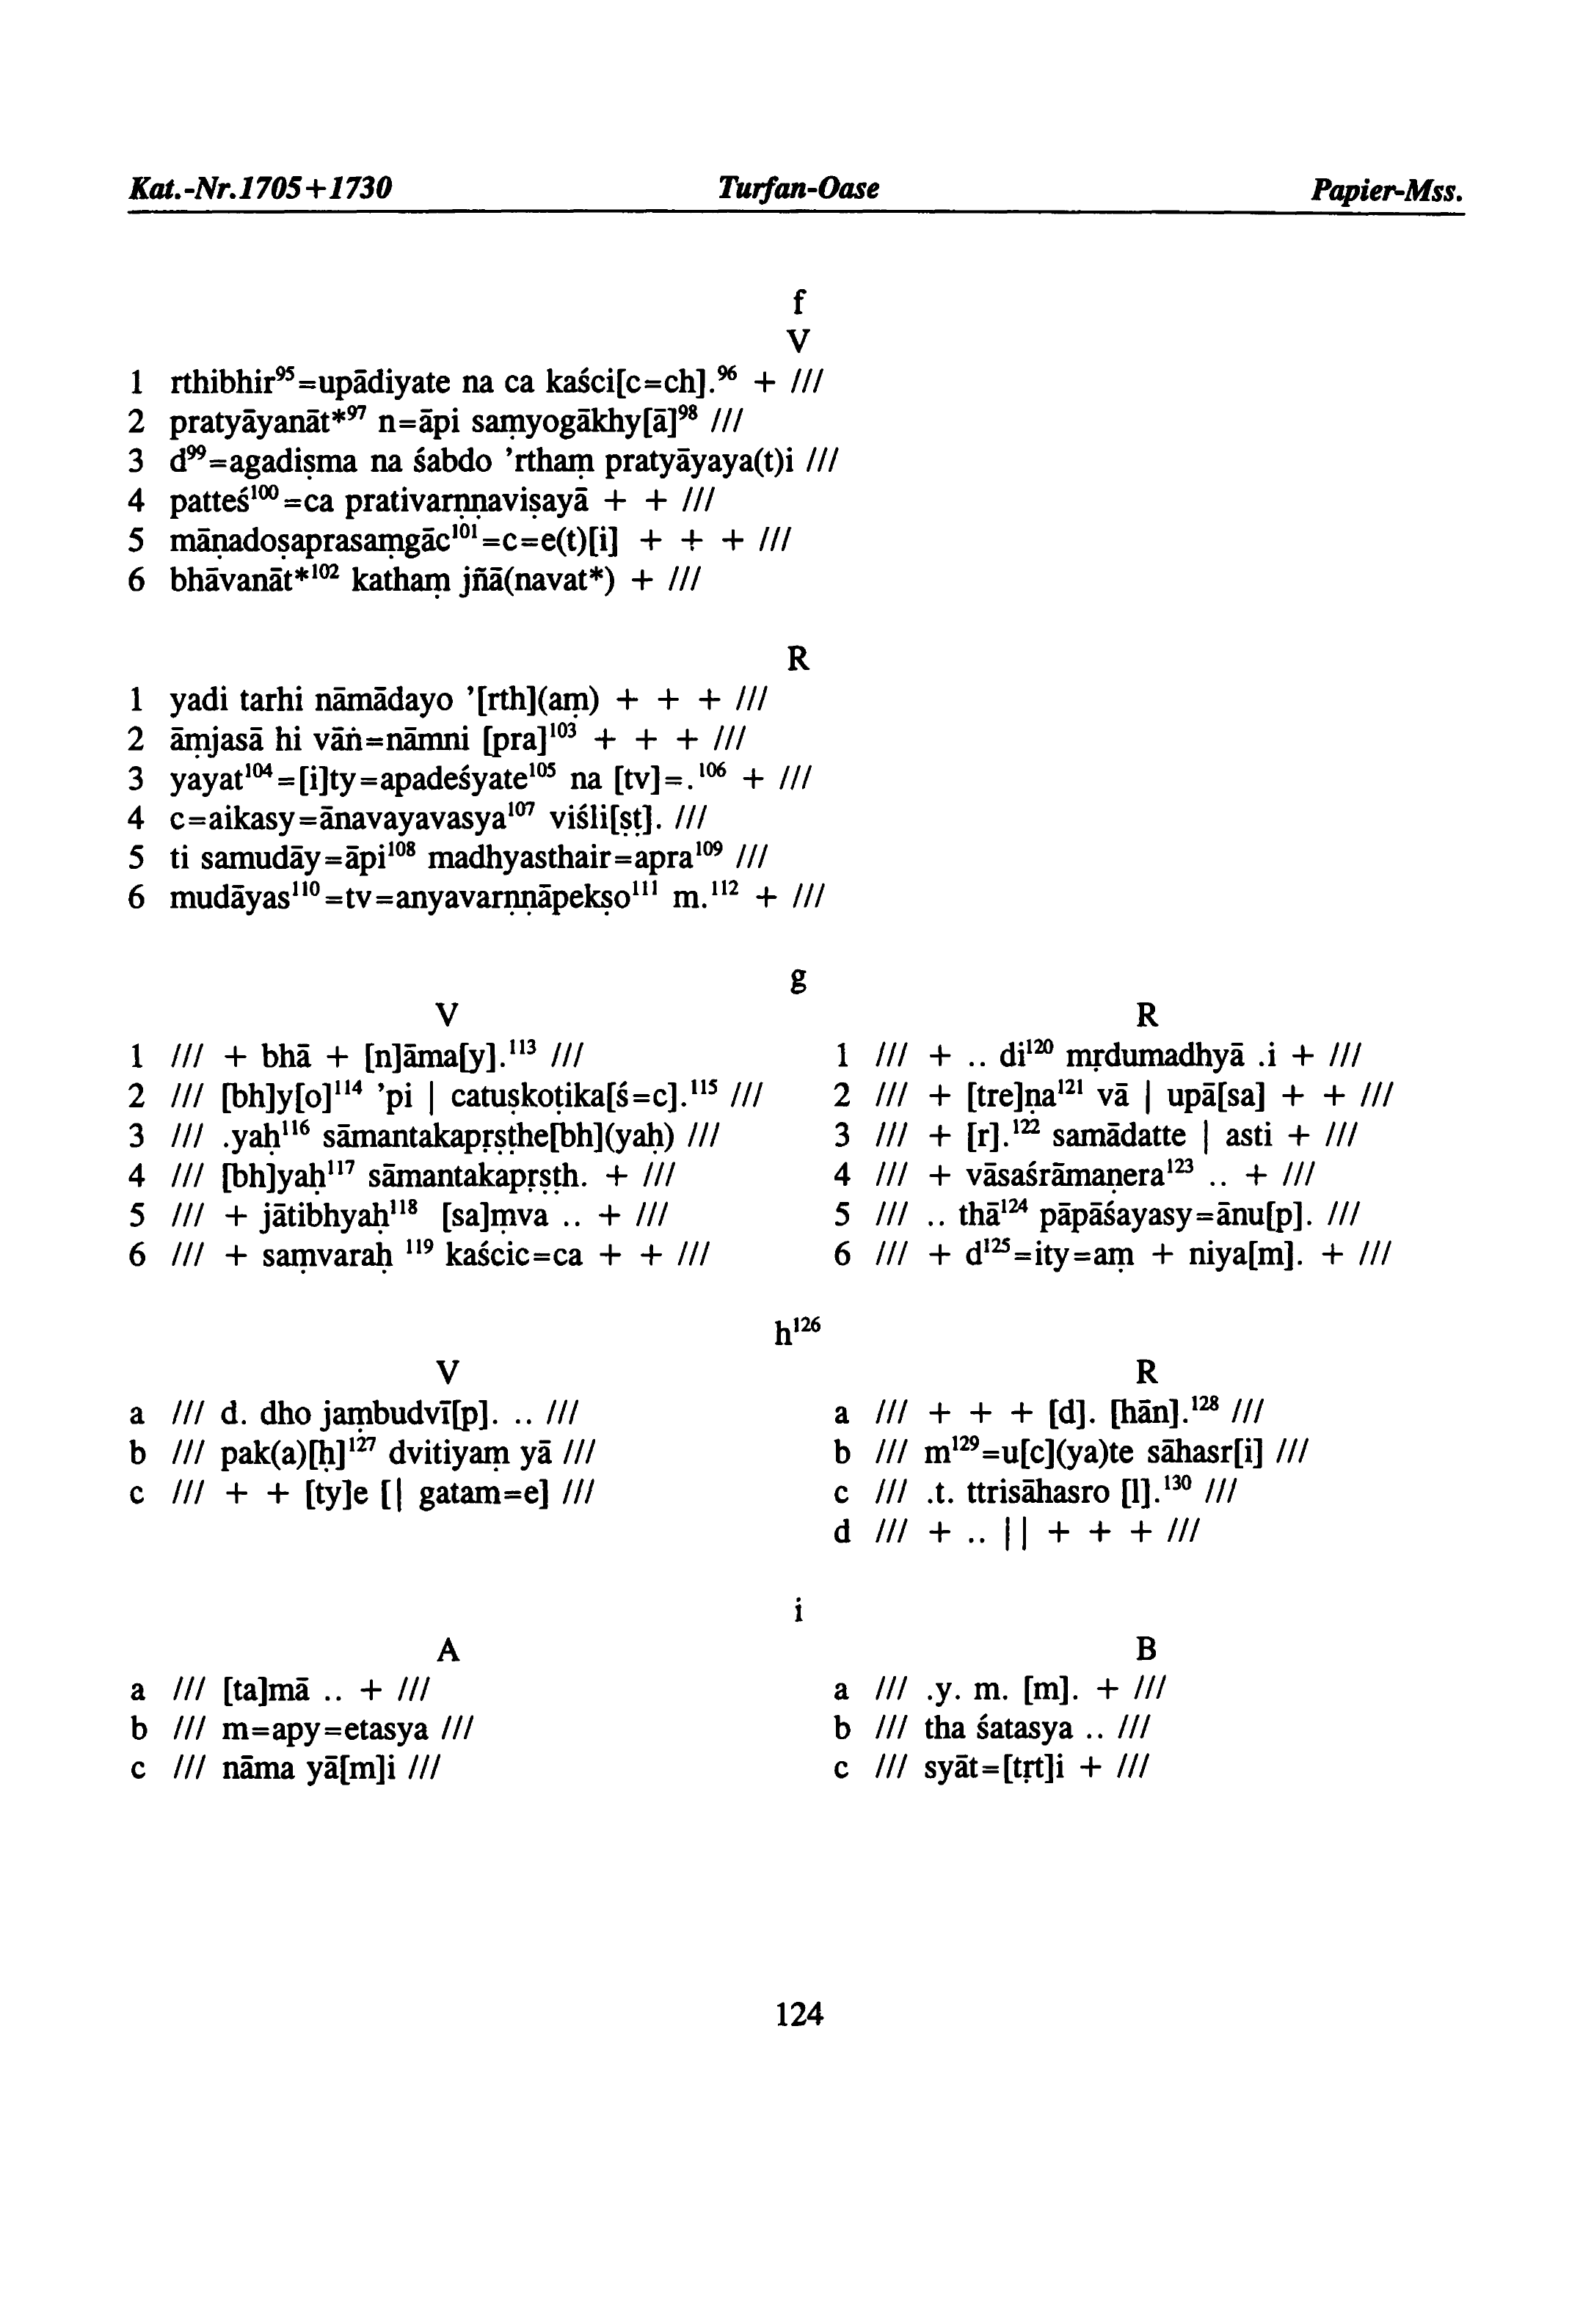 Kat.-Nr.1705+1730 Turfan-Oase Papier-Mss.
f
V
1 rthibhir⁹⁵=upādiyate na ca kaści[c=ch].⁹⁶ + ///
2 pratyāyanāt*⁹⁷ n=āpi saṃyogākhy[ā]⁹⁸ ///
3 d⁹⁹=agadiṣma na śabdo ’rthaṃ pratyāyaya(t)i ///
4 patteś¹⁰⁰=ca prativarṇṇaviṣayā + + ///
5 māṇadoṣaprasaṃgāc¹⁰¹=c=e(t)[i] + + + ///
6 bhāvanāt*¹⁰² kathaṃ jñā(navat*) + ///
R
1 yadi tarhi nāmādayo ’[rth](aṃ) + + + ///
2 āṃjasā hi vāṅ=nāmni [pra]¹⁰³ + + + ///
3 yayat¹⁰⁴=[i]ty=apadeśyate¹⁰⁵ na [tv]=.¹⁰⁶ + ///
4 c=aikasy=ānavayavasya¹⁰⁷ viśli[ṣṭ]. ///
5 ti samudāy=āpi¹⁰⁸ madhyasthair=apra¹⁰⁹ ///
6 mudāyas¹¹⁰=tv=anyavarṇṇāpekṣo¹¹¹ m.¹¹² + ///
g
V
1 /// + bhā + [n]āma[y].¹¹³ ///
2 /// [bh]y[o]¹¹⁴ ’pi | catuṣkoṭika[ś=c].¹¹⁵ ///
3 /// .yaḥ¹¹⁶ sāmantakapṛṣṭhe[bh](yaḥ) ///
4 /// [bh]yaḥ¹¹⁷ sāmantakapṛṣṭh. + ///
5 /// + jātibhyaḥ¹¹⁸ [sa]ṃva .. + ///
6 /// + saṃvaraḥ ¹¹⁹ kaścic=ca + + ///
R
1 /// + .. di¹²⁰ mṛdumadhyā .i + ///
2 /// + [tre]ṇa¹²¹ vā | upā[sa] + + ///
3 /// + [r].¹²² samādatte | asti + ///
4 /// + vāsaśrāmaṇera¹²³ .. + ///
5 /// .. thā¹²⁴ pāpāśayasy=ānu[p]. ///
6 /// + d¹²⁵=ity=aṃ + niya[m]. + ///
h¹²⁶
V
a /// d. dho jaṃbudvī[p]. .. ///
b /// pak(a)[ḥ]¹²⁷ dvitiyaṃ yā ///
c /// + + [ty]e [| gatam=e] ///
R
a /// + + + [d]. [hān].¹²⁸ ///
b /// m¹²⁹=u[c](ya)te sāhasr[i] ///
c /// .t. ttrisāhasro [l].¹³⁰ ///
d /// + .. || + + + ///
i
A
a /// [ta]mā .. + ///
b /// m=apy=etasya ///
c /// nāma yā[m]i ///
B
a /// .y. m. [m]. + ///
b /// tha śatasya .. ///
c /// syāt=[tṛt]i + ///
124